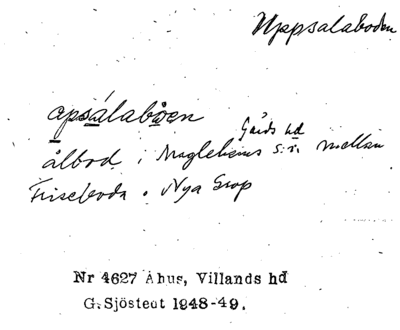 Uppsalaboden
apsálabåen
Gärds hd
ålbod i Maglehems s:n mellan
Friseboda o. Nya Grop
Nr 4627 Åhus, Villands hd
G. Sjöstedt 1948-49.